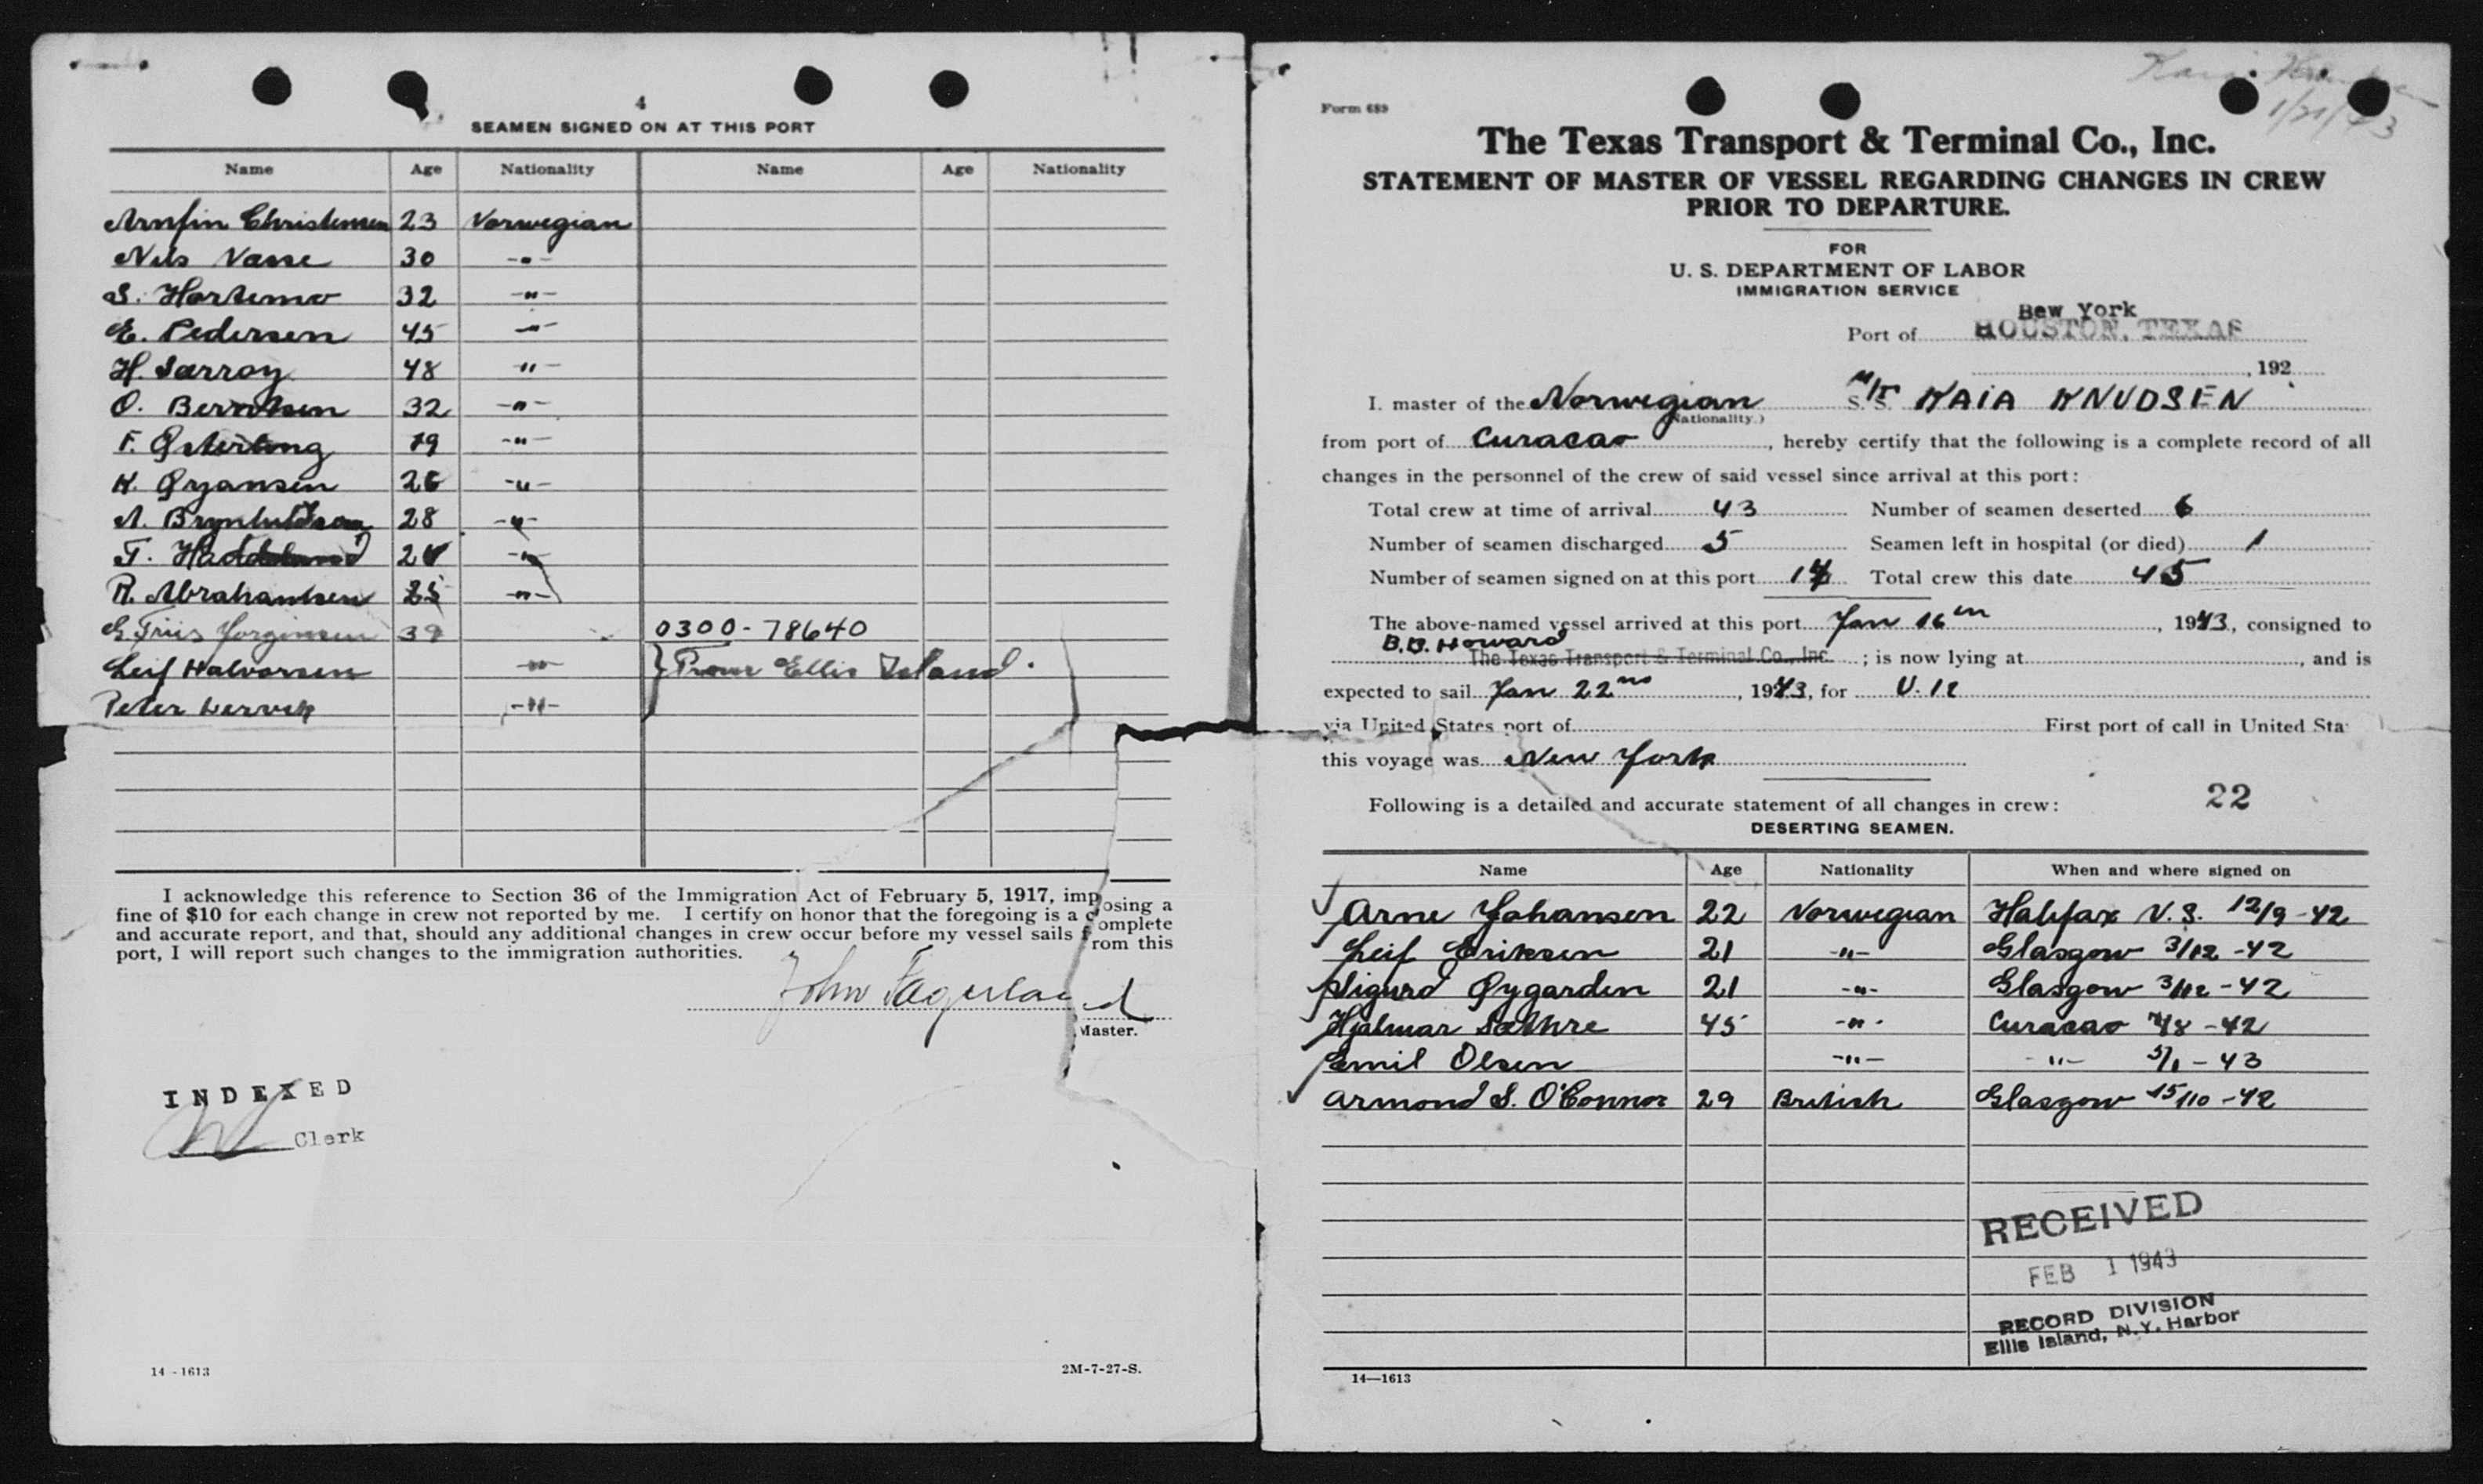 4
SEAMEN SIGNED ON AT THIS PORT
Name Age Nationality Name Age Nationality
Arnfin Christensen 23 Norwegian
Nels 30 -"-
S. Hortemo 32 -"-
E. Pedersen 45 -"-
H. Sarroy 48 -"-
O. Berntsen 32 -"-
F. Østerling 19 -"-
K. Ørjansen 26 -"-
A. 28 -"-
T. Haddeland 2 -"-
R. Abrahamsen 25 -"-
G. Friis Jorginsen 39 0300-78640
Leif Halvorsen -"- } From Ellis Island.
Peter -"-
I acknowledge this reference to Section 36 of the Immigration Act of February 5, 1917, imposing a
fine of $10 for each change in crew not reported by me. I certify on honor that the foregoing is a complete
and accurate report, and that, should any additional changes in crew occur before my vessel sails from this
port, I will report such changes to the immigration authorities.
John Fagerland
Master.
INDEXED
Clerk
14-1613 2M-7-27-S.
1/21/43
Form 689
The Texas Transport & Terminal Co., Inc.
STATEMENT OF MASTER OF VESSEL REGARDING CHANGES IN CREW
PRIOR TO DEPARTURE.
FOR
U. S. DEPARTMENT OF LABOR
IMMIGRATION SERVICE
Bew York
Port of HOUSTON, TEXAS
, 192
I. master of the Norwegian S.S. KAIA KNUDSEN
(Nationality.)
from port of Curacao, hereby certify that the following is a complete record of all
changes in the personnel of the crew of said vessel since arrival at this port:
Total crew at time of arrival 43 Number of seamen deserted 6
Number of seamen discharged 5 Seamen left in hospital (or died) 1
Number of seamen signed on at this port 14 Total crew this date 45
The above-named vessel arrived at this port Jan 16th, 1943, consigned to
B.B. Howard
The Texas Transport & Terminal Co., Inc.; is now lying at, and is
expected to sail Jan 22nd, 1943, for U.K.
via United States port of First port of call in United Sta
this voyage was New York
Following is a detailed and accurate statement of all changes in crew: 22
DESERTING SEAMEN.
Name Age Nationality When and where signed on
Arne Johansen 22 Norwegian Halifax N.S. 12/9-42
Leif Eriksen 21 -"- Glasgow 3/12-42
Sigurd Øygarden 21 -"- Glasgow 3/12-42
Hjalmar Sæthre 45 -"- Curacao /8-42
Emil Olsen -"- -"- 5/1-43
Armond S. O'Connor 29 British Glasgow 15/10-42
RECEIVED
FEB 1 1943
RECORD DIVISION
Ellis Island, N.Y. Harbor
14—1613